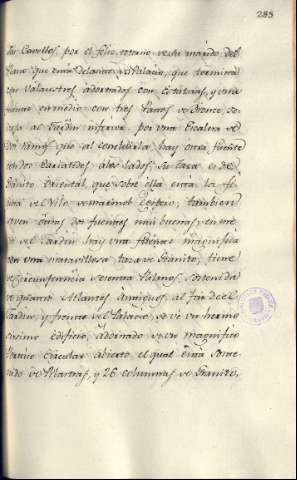 285
sus Cavellos, por el feliz retorno de su marido del
Plano que está delante del Palacio, que termina
con Valaustres adornados con Estatuas, y una
fuente en medio con tres Tasas de Bronce, se
baja al Jardin inferior por una Escalera de
dos ramos que al concluirla hay otra fuente
con dos Delfines a los lados. Su tasa es de
Granito Oriental, que sobre ella está la fi
gura del Nilo de marmol negro, tambien
ay en otras dos fuentes mui buenas, y en me
dio del Jardin hay una fuente magnifica
con una maravillosa tasa de Granito, tiene
de circunferencia setenta Palmos, sostenida
de quatro Atlantes Antiguos, al fin de el
Jardin, y frente del Palacio, se ve un hermo
sisimo edificio, adornado de un magnifico
Portico Circular abierto, el qual está soste
nido de Pilastras, y 26 columnas de Granito,